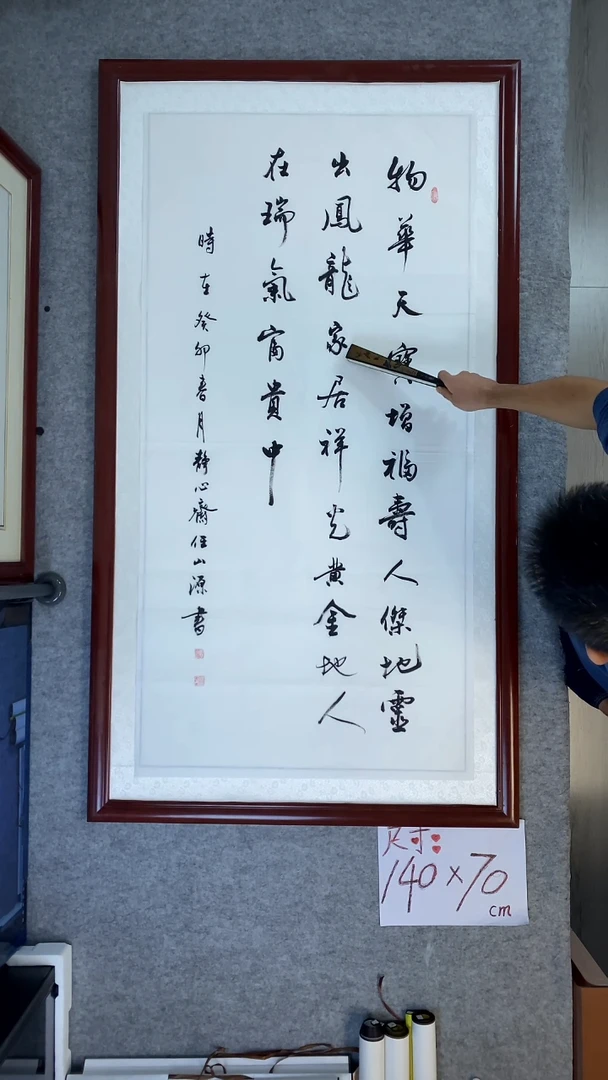 物華天寶增福壽人傑地靈
出鳳龍家居祥光黃金地人
在瑞氣富貴中
時在癸卯春月靜心齋任山源書
尺寸:
140×70
cm